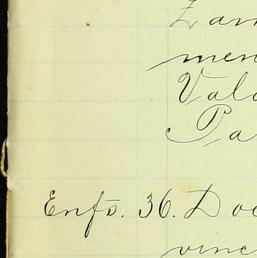 Zam
men
Valo
Pa
Enfo. 36. Doc
vinc